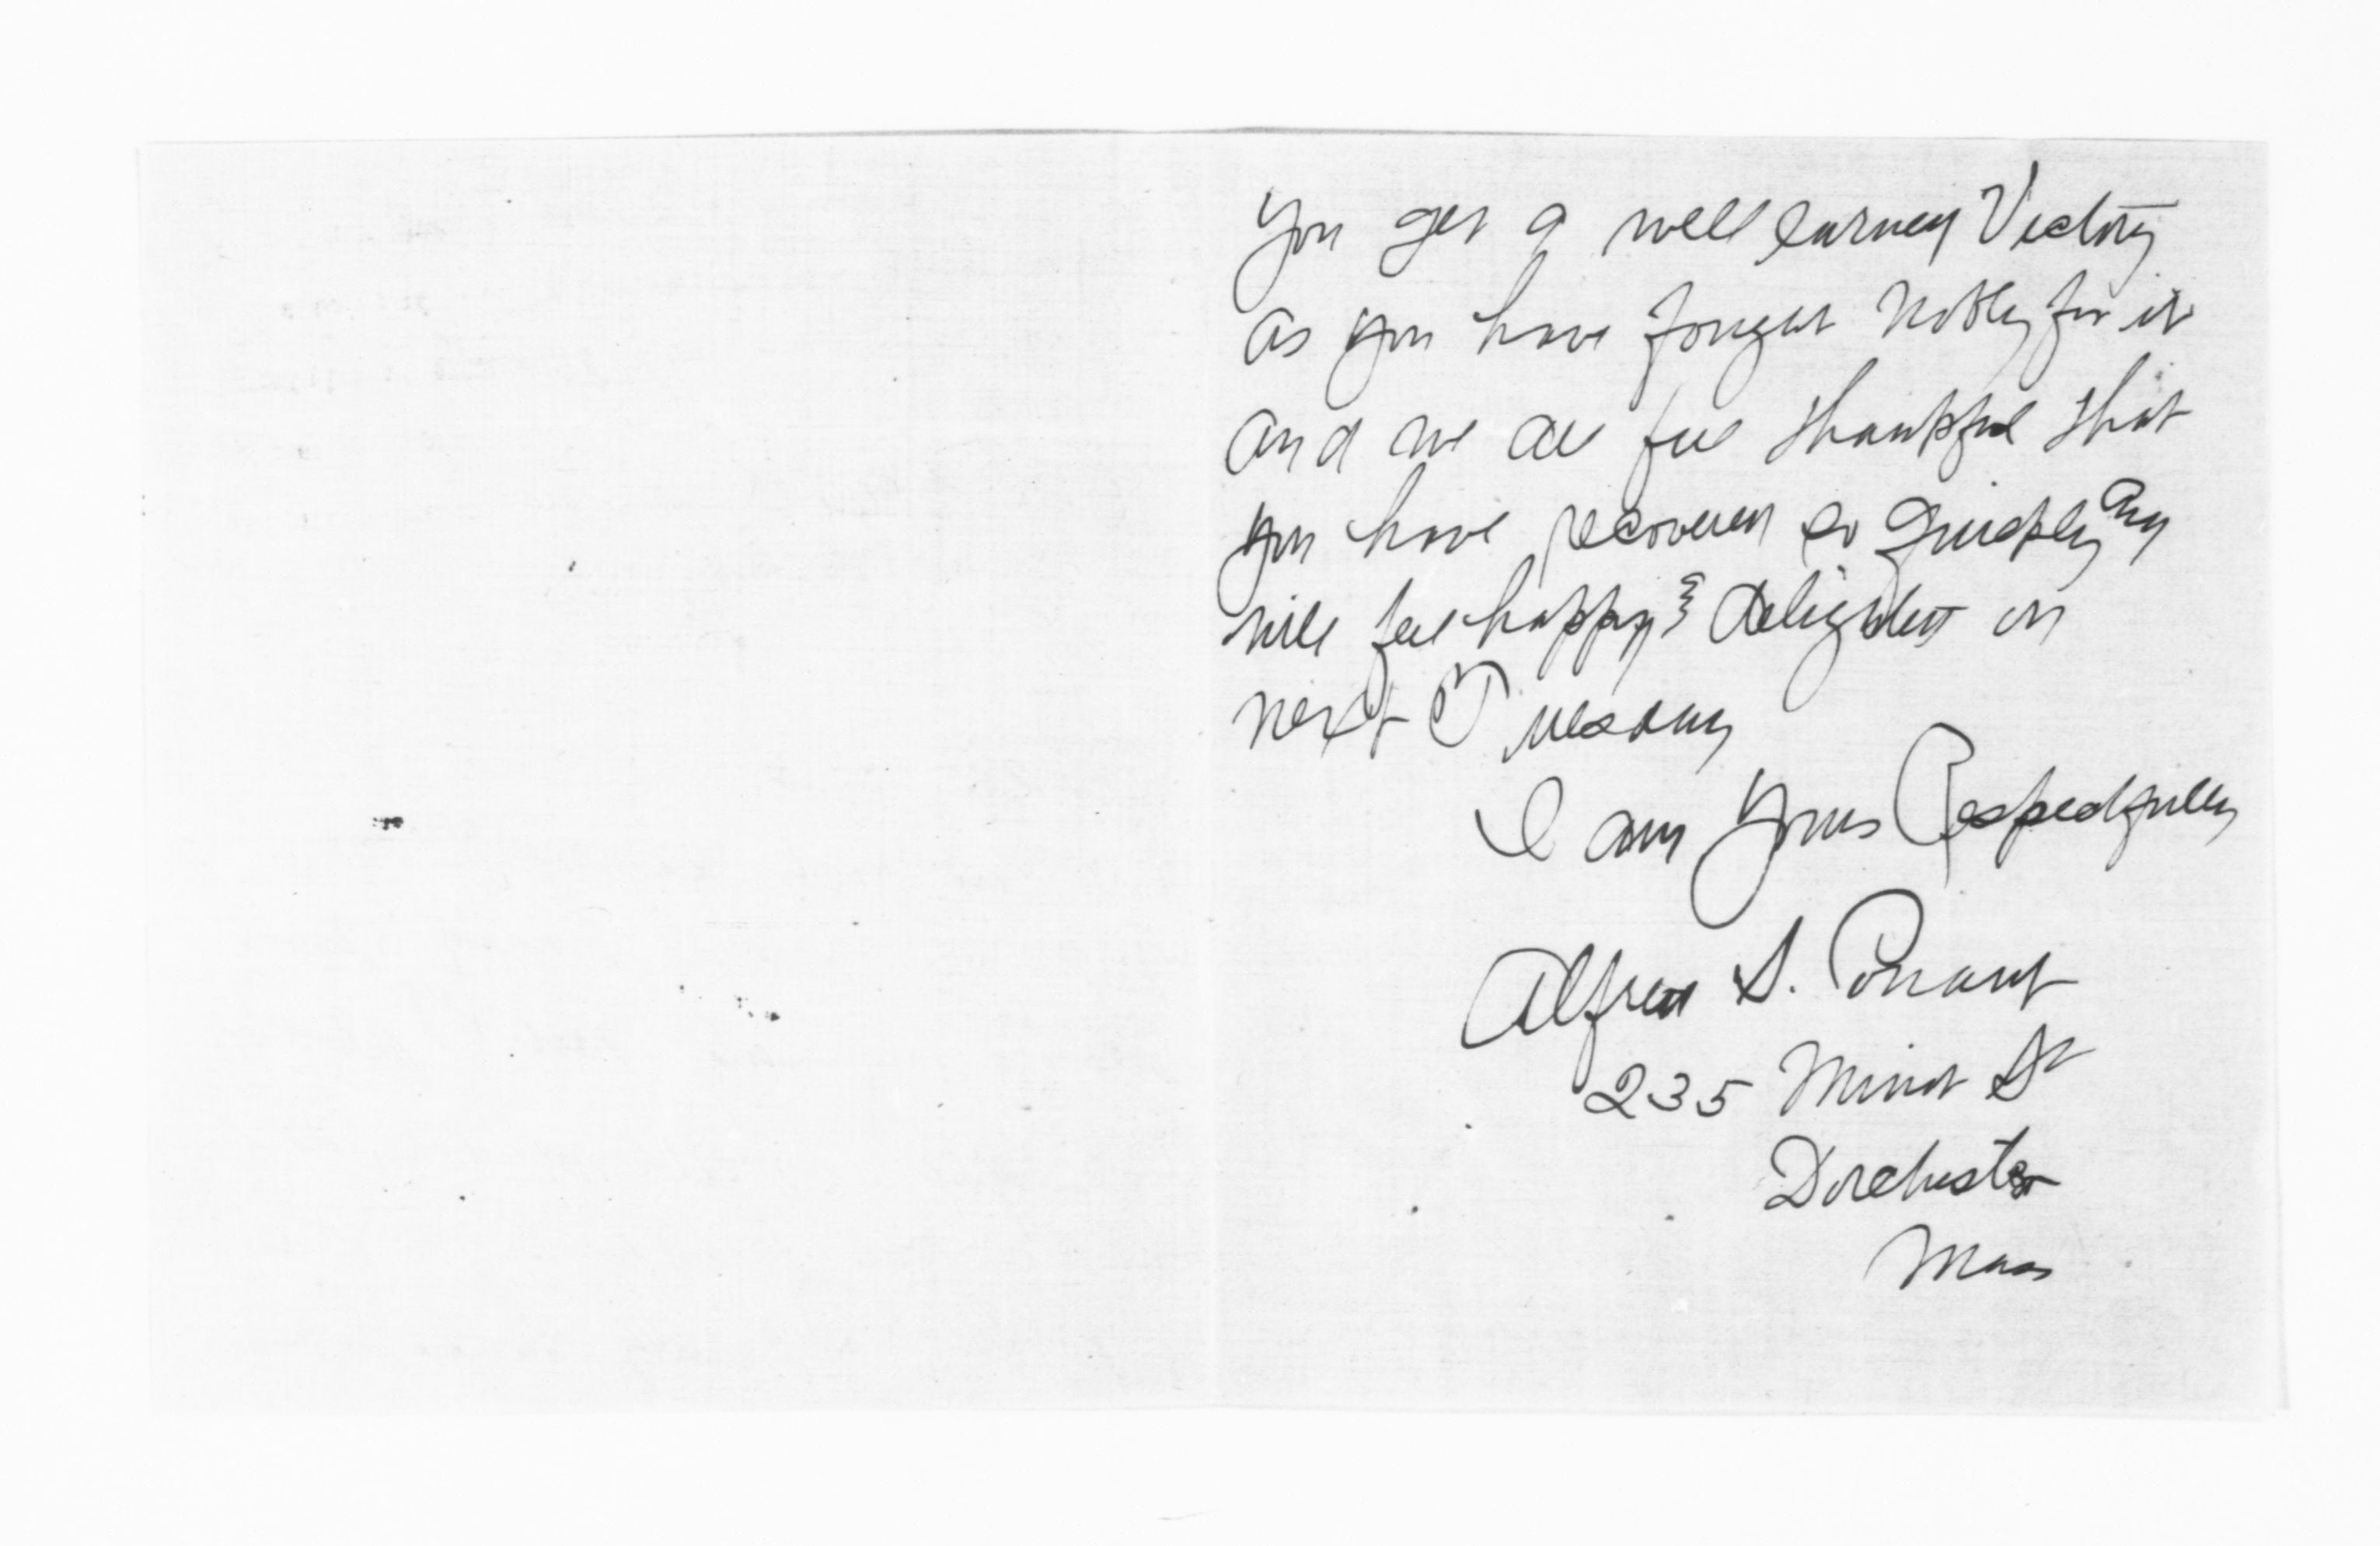 You get a well earned Victory
as you have fought Nobly for it
and we all feel thankful that
you have recovered so quickly and
will feel happy & delighted on
next Tuesday
I am Yours Respectfully
Alfred S. Conant
235 Minot St
Dorchester
Mass